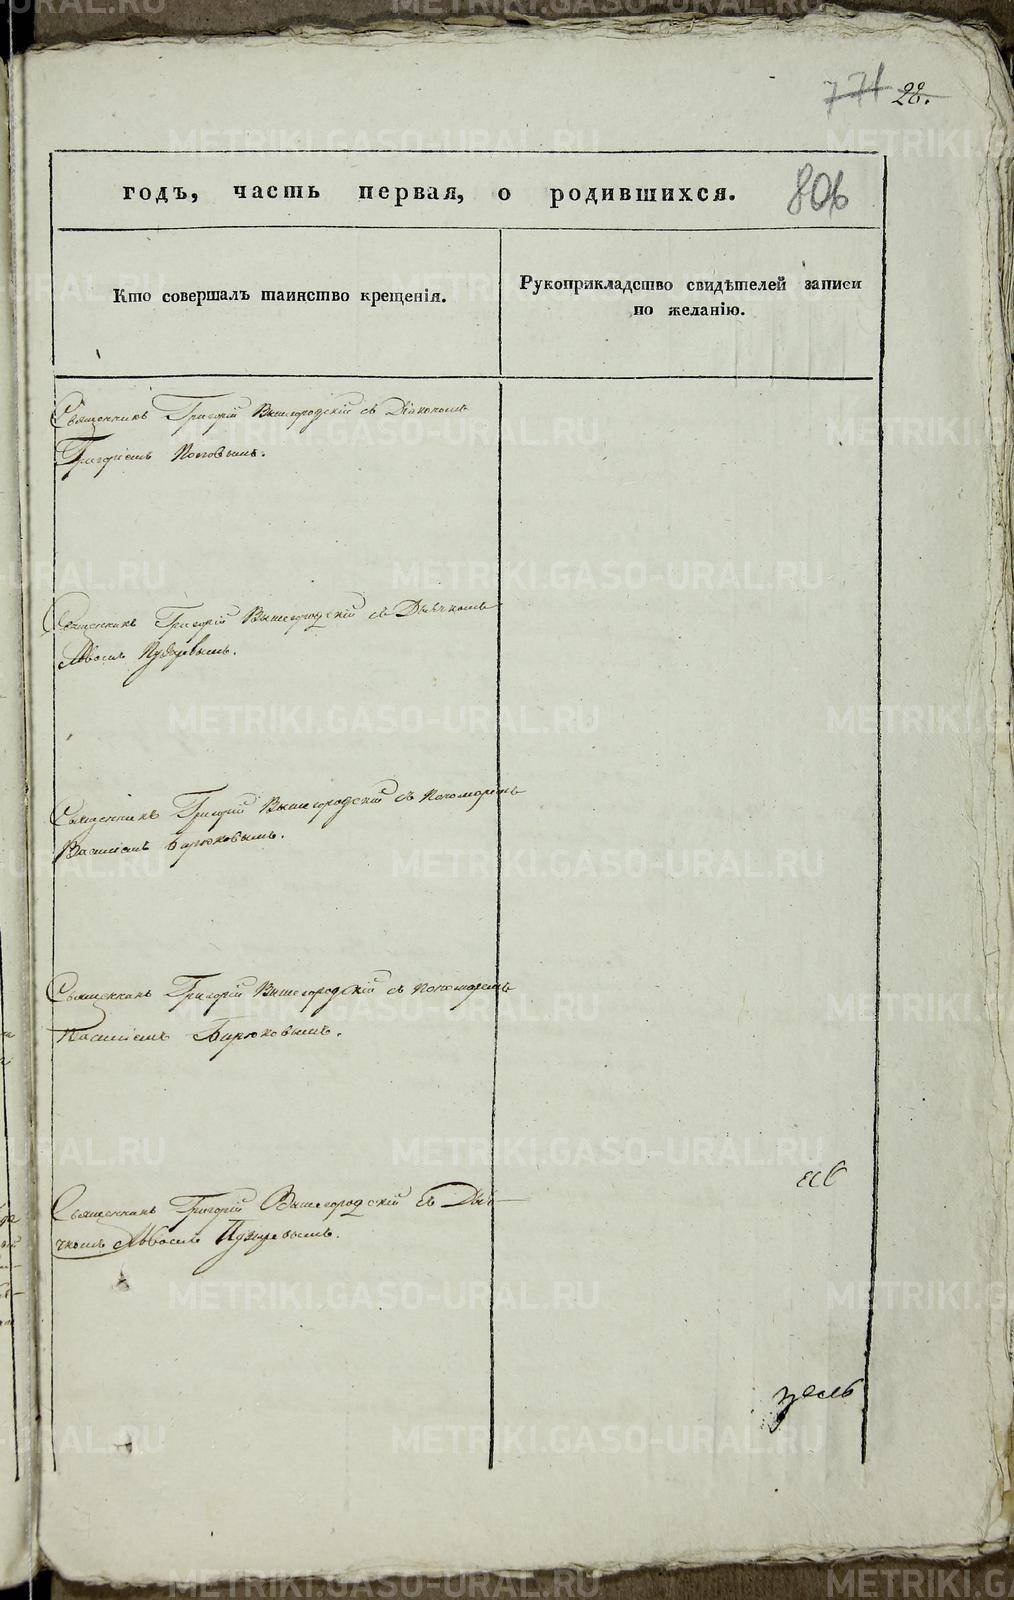 771 28.
806
годъ, часть первая, о родившихся.
Кто совершалъ таинство крещенія.
Рукоприкладство свидѣтелей записи
по желанію.
Священникъ Григорій Вышегородскій съ Діакономъ
Григоріемъ Поповымъ.
Священникъ Григорій Вышегородскій съ Дьячкомъ
Львомъ
Священникъ Григорій Вышегородскій съ Пономаремъ
Василіемъ Бирюковымъ.
Священникъ Григорій Вышегородскій съ Пономаремъ
Василіемъ Бирюковымъ.
Священникъ Григорій Вышегородскій съ Дья-
чкомъ Львомъ
METRIKI.GASO-URAL.RU